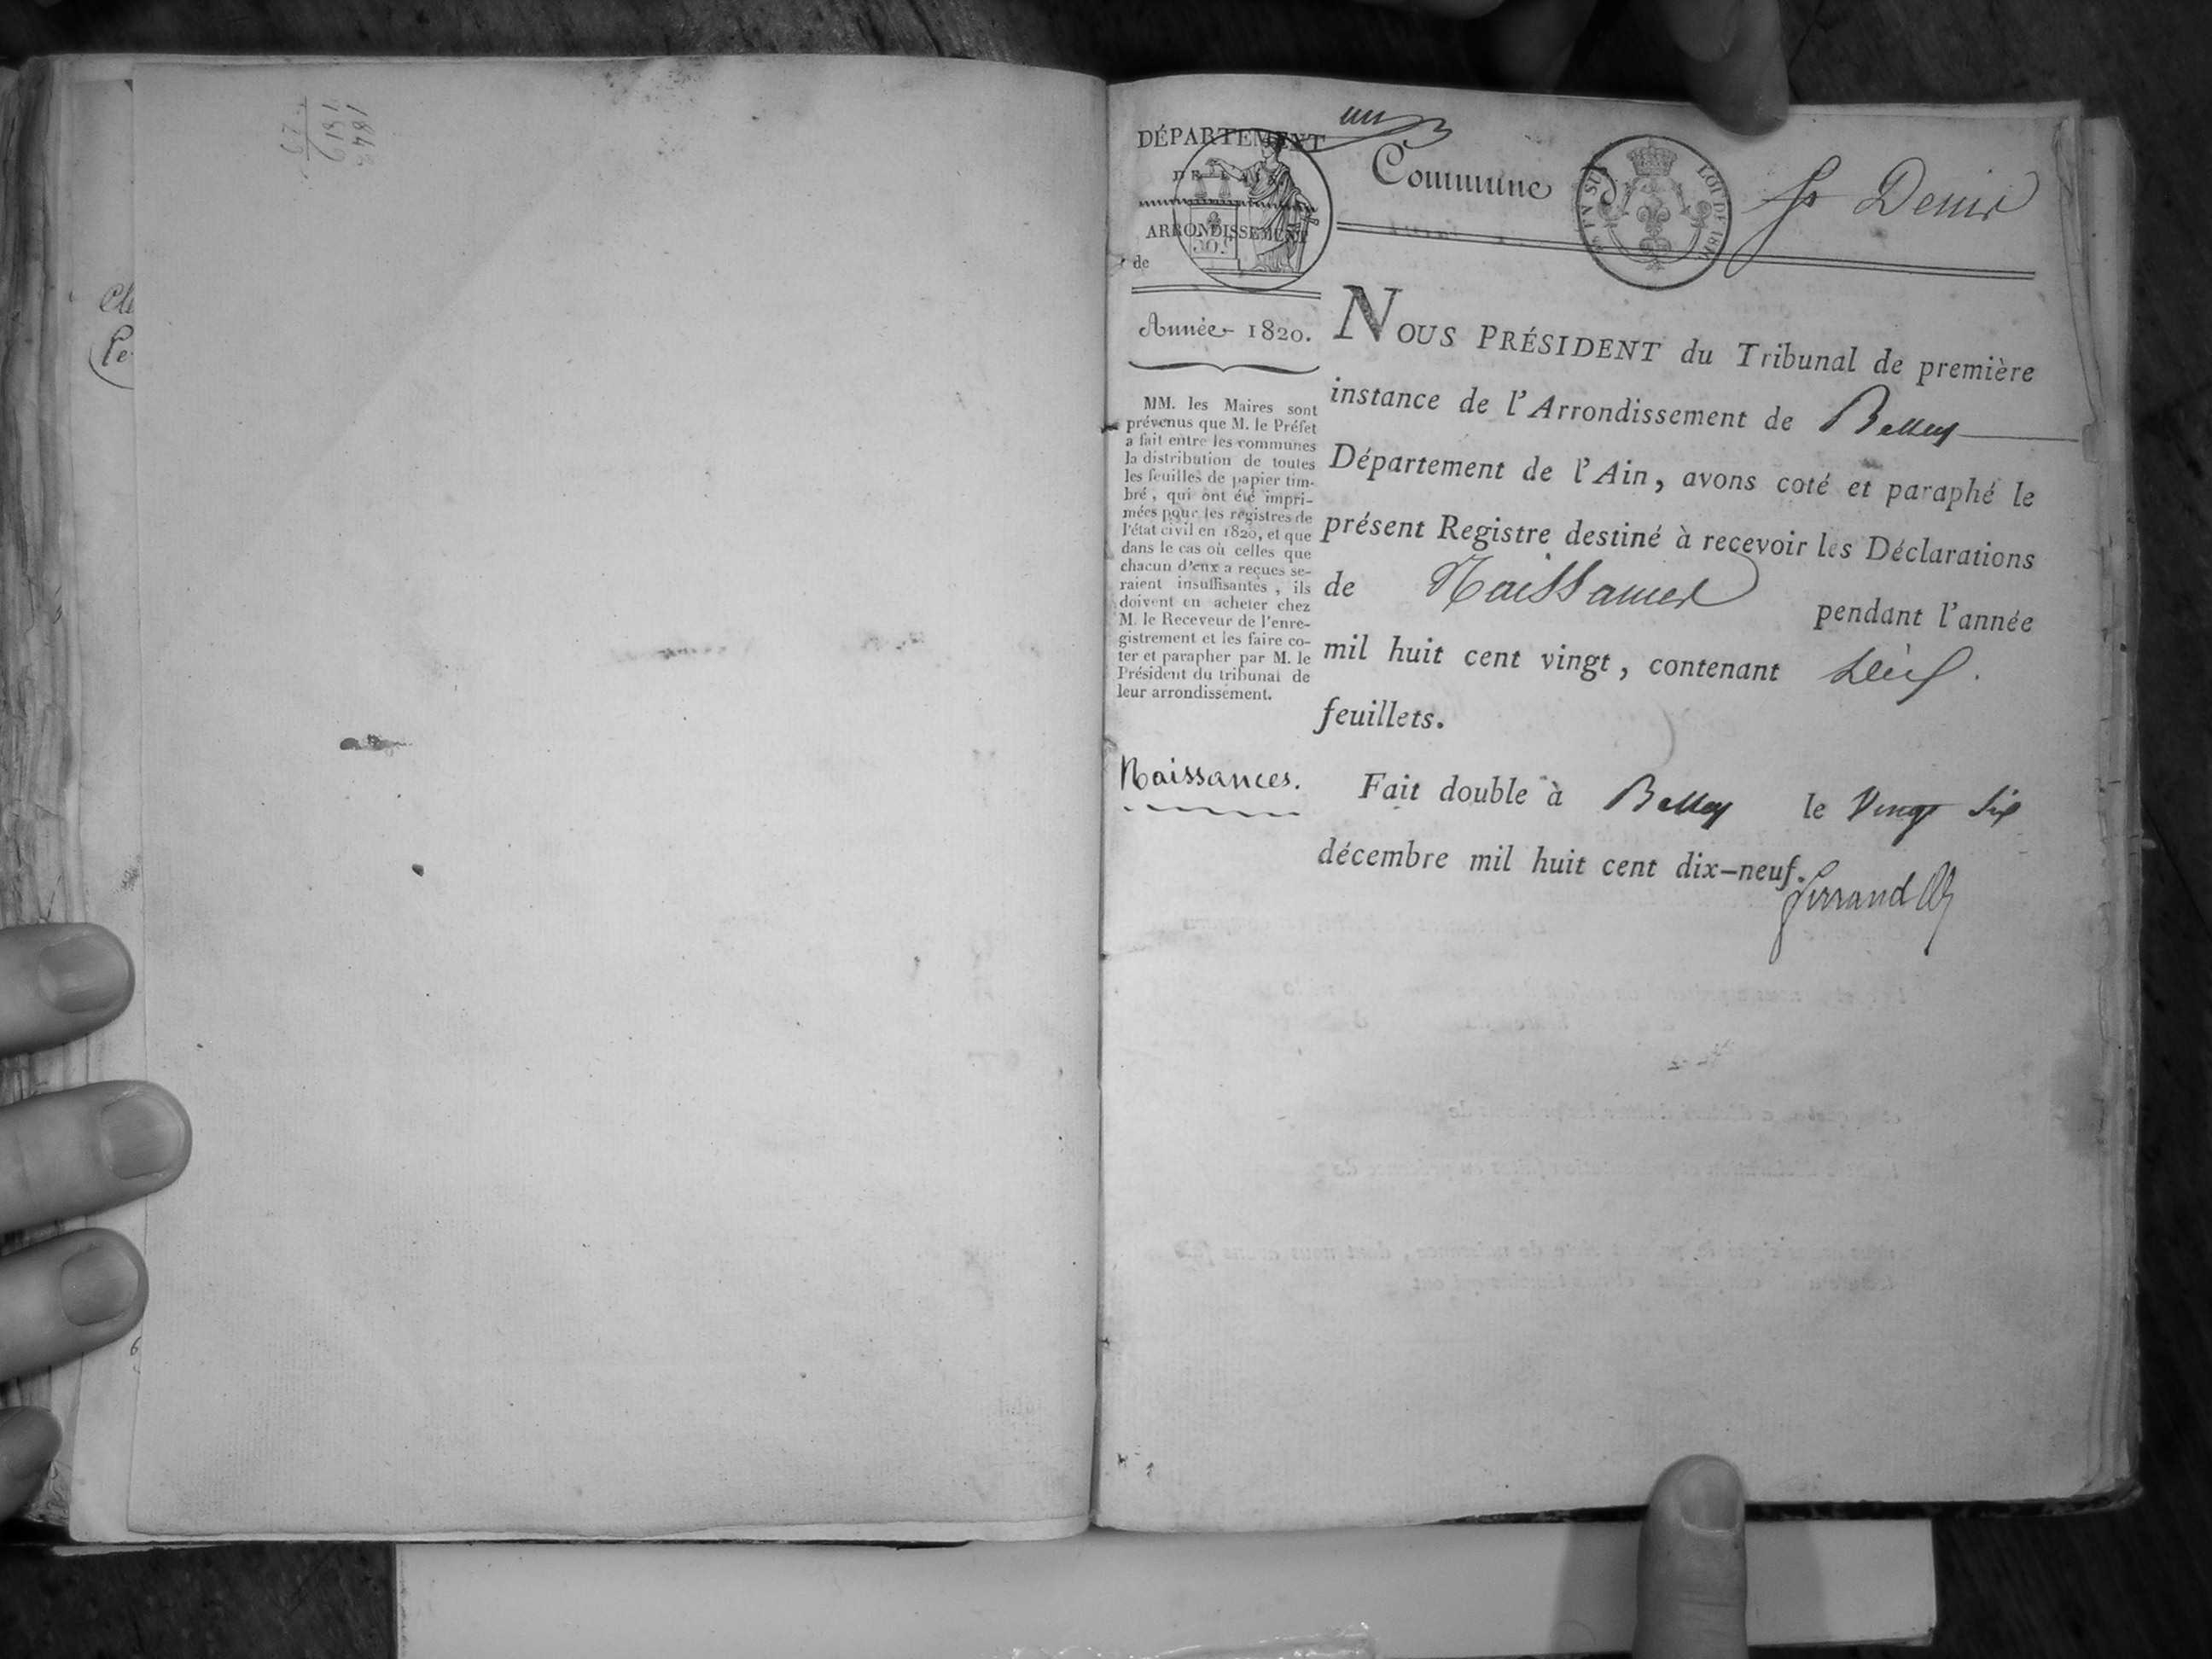 1842
1819
23
un
DÉPARTEMENT
DE L'AIN
ARRONDISSEMENT
de
Commune de St Denis
LOI DE 181
50c
Année 1820.
MM. les Maires sont
prévenus que M. le Préfet
a fait entre les communes
la distribution de toutes
les feuilles de papier tim-
bré, qui ont été impri-
mées pour les registres de
l'état civil en 1820, et que
dans le cas où celles que
chacun d'eux a reçues se-
raient insuffisantes, ils
doivent en acheter chez
M. le Receveur de l'enre-
gistrement et les faire co-
ter et parapher par M. le
Président du tribunal de
leur arrondissement.
Naissances.
NOUS PRÉSIDENT du Tribunal de première
instance de l'Arrondissement de Belley
Département de l'Ain, avons coté et paraphé le
présent Registre destiné à recevoir les Déclarations
de Naissances pendant l'année
mil huit cent vingt, contenant
feuillets.
Fait double à Belley le Vingt Six
décembre mil huit cent dix-neuf.